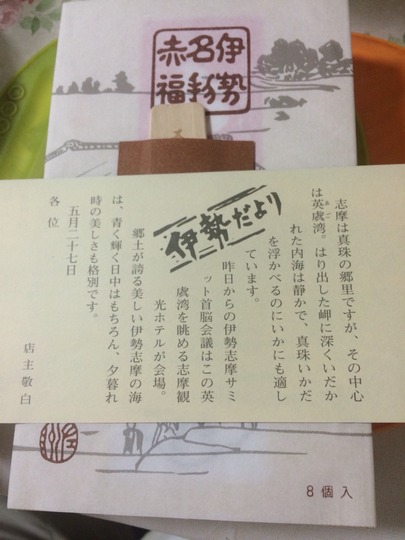 伊勢
名物
赤福
伊勢だより
志摩は真珠の郷里ですが、その中心
は英虞湾。はり出した岬に深くいだか
あご
れた内海は静かで、真珠いかだ
を浮かべるのにいかにも適し
ています。
昨日からの伊勢志摩サミ
ット首脳会議はこの英
虞湾を眺める志摩観
光ホテルが会場。
郷土が誇る美しい伊勢志摩の海
は、青く輝く日中はもちろん、夕暮れ
時の美しさも格別です。
五月二十七日
店主敬白
各位
8個入